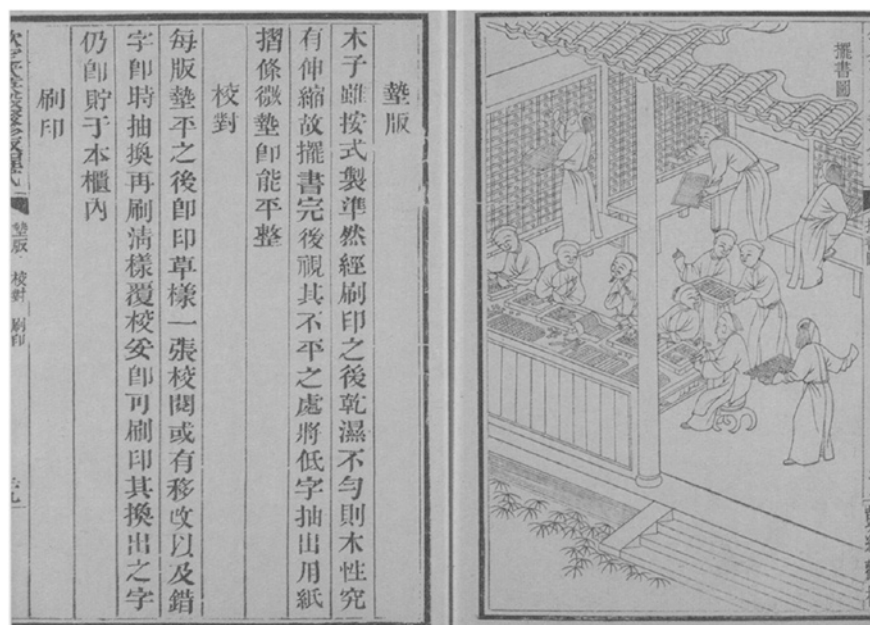 擺書圖
墊版
木子雖按式製準然經刷印之後乾濕不勻則木性究
有伸縮故擺書完後視其不平之處將低字抽出用紙
摺條微墊即能平整
校對
每版墊平之後即印草樣一張校閱或有移改以及錯
字即時抽換再刷清樣覆校妥即可刷印其換出之字
仍即貯于本櫃內
刷印
墊版 校對 刷印